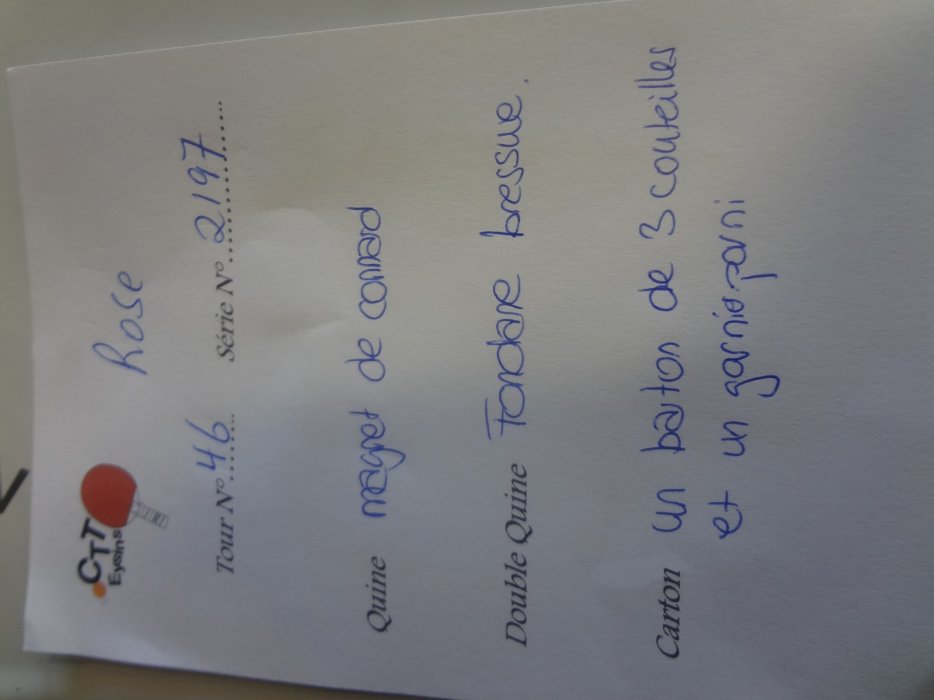 CTT
Eyzins
Rose
Tour N° 46 Série N° 2197
Quine magret de conard
Double Quine Fondare bressue.
Carton un barton de 3 couteilles
et un garnio-parni